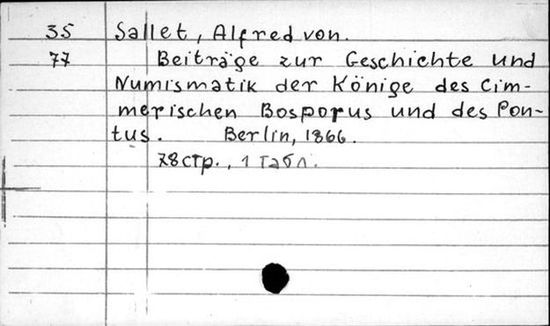 35 Sallet, Alfred von.
77 Beiträge zur Geschichte und
Numismatik der Könige des Cim-
merischen Bosporus und des Pon-
tus. Berlin, 1866.
78 стр., 1 табл.